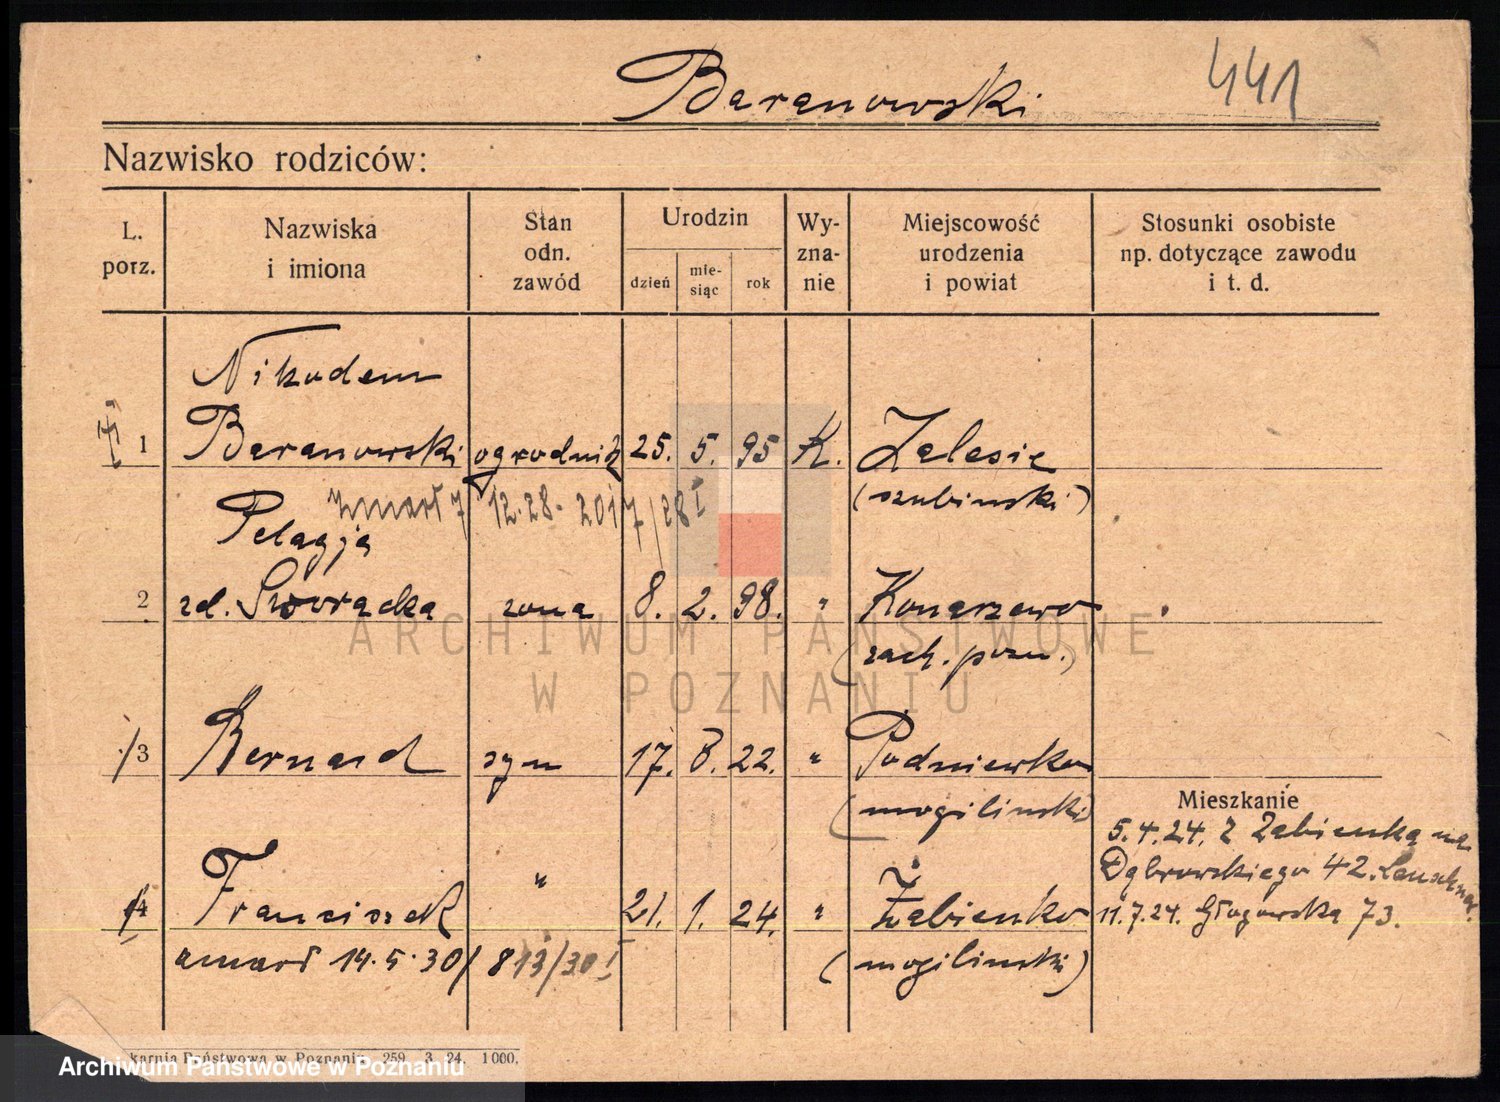 Baranowski
441
Nazwisko rodziców:
L. porz.
Nazwiska i imiona
Stan odn. zawód
Urodzin
dzień
mie-
siąc
rok
Wy-
zna-
nie
Miejscowość
urodzenia
i powiat
Stosunki osobiste
np. dotyczące zawodu
i t. d.
Nikodem
1 Baranowski ogrodnik 25. 5. 95 K. Zalesie
(szubiński)
zmarł 7 12.28. 2017/28 I
Pelagja
2 zd. Sworacka żona 8. 2. 98. " Konarzewo
(zach. pozn.)
3 Bernard syn 17. 8. 22. " Podniewko
(mogilinski)
Mieszkanie
5.4.24. z Żabienka na
Dąbrowskiego 42.
4 Franciszek " 21. 1. 24. " Żabienko
11.7.24. Głogowska 73.
zmarł 14.5.30/ 813/30 I
(mogilinski)
karnia Państwowa w Poznaniu 259. 3. 24. 1000.
ARCHIWUM PAŃSTWOWE
W POZNANIU
Archiwum Państwowe w Poznaniu